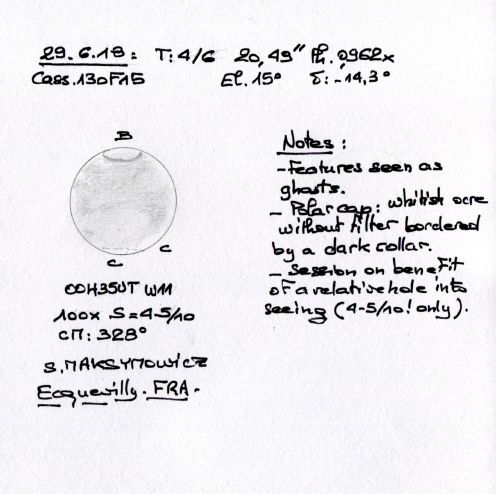 29.6.18 : T: 4/6 20,49" Ph. 0,962x
Cass.130F15 El. 15° δ: -14,3°
B
C
C
00H35UT W11
100x S=4-5/10
CM: 328°
S. MAKSYMOWICZ
Ecquevilly. FRA.
Notes :
- Features seen as
ghosts.
- Polar cap: whitish ocre
without filter bordered
by a dark collar.
- Session on benefit
of a relative hole into
seeing (4-5/10! only).